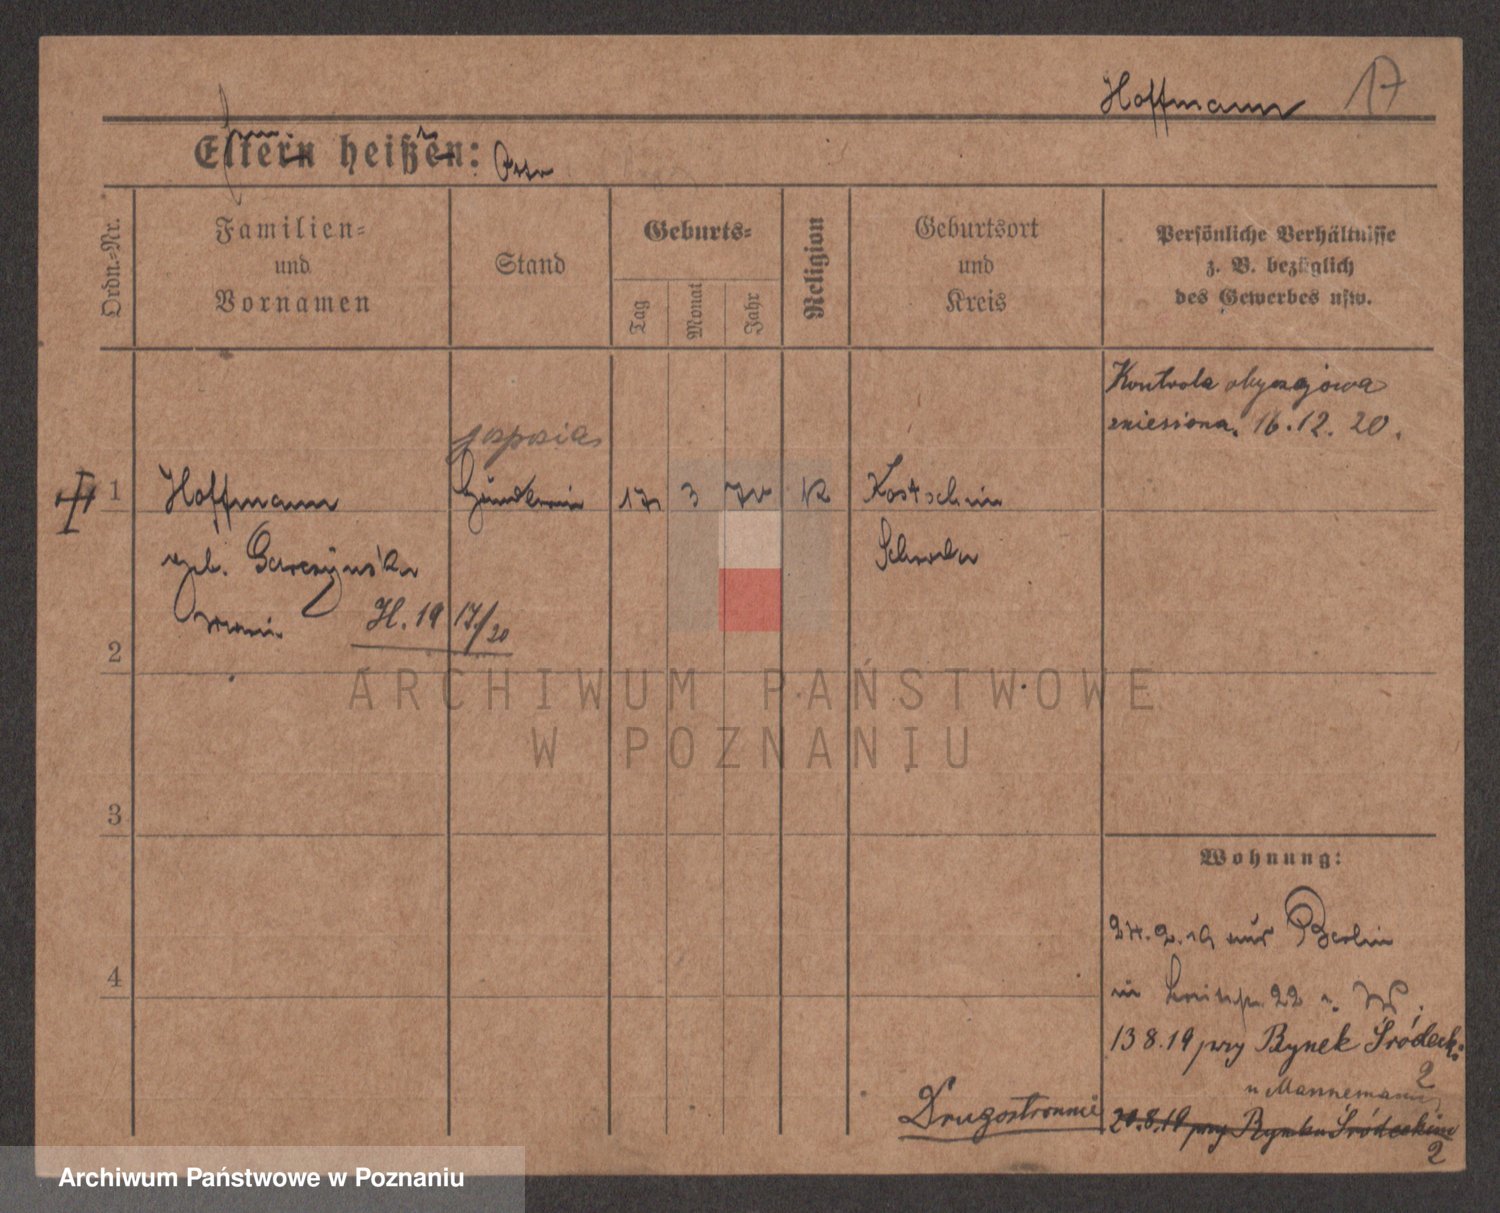 Hoffmann 17
Eltern heißen:
Ordn.-Nr.
Familien-
und
Vornamen
Stand
Geburts-
Tag
Monat
Jahr
Religion
Geburtsort
und
Kreis
Persönliche Verhältnisse
z. B. bezüglich
des Gewerbes usw.
Kontrola obyczajowa
zniesiona. 16.12.20.
1
Hoffmann
geb. Garczyńska
H. 19 17/20
3
K
Kostschin
Schroda
2
3
4
Wohnung:
24.2.19 aus Berlin
in 22
13 8.19 przy Rynek Śródecki
2
u Mannemann
20.8.19 przy Rynku Śródeckim
2
Drugostronnie
ARCHIWUM PAŃSTWOWE
W POZNANIU
Archiwum Państwowe w Poznaniu